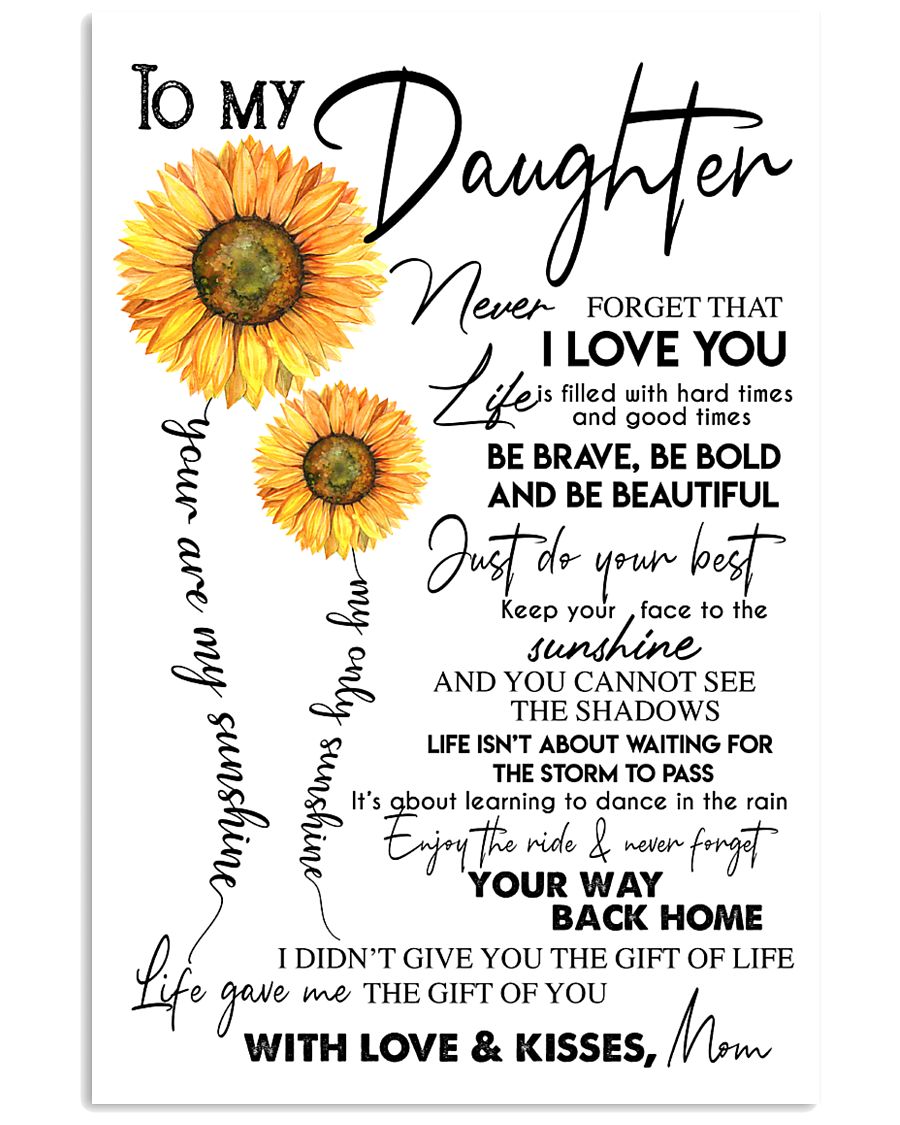 To my Daughter
Never FORGET THAT
I LOVE YOU
Life is filled with hard times
and good times
BE BRAVE, BE BOLD
AND BE BEAUTIFUL
Just do your best
Keep your face to the
sunshine
AND YOU CANNOT SEE
THE SHADOWS
LIFE ISN'T ABOUT WAITING FOR
THE STORM TO PASS
It's about learning to dance in the rain
Enjoy the ride & never forget
YOUR WAY
BACK HOME
I DIDN'T GIVE YOU THE GIFT OF LIFE
Life gave me THE GIFT OF YOU
WITH LOVE & KISSES, Mom
your are my sunshine
my only sunshine